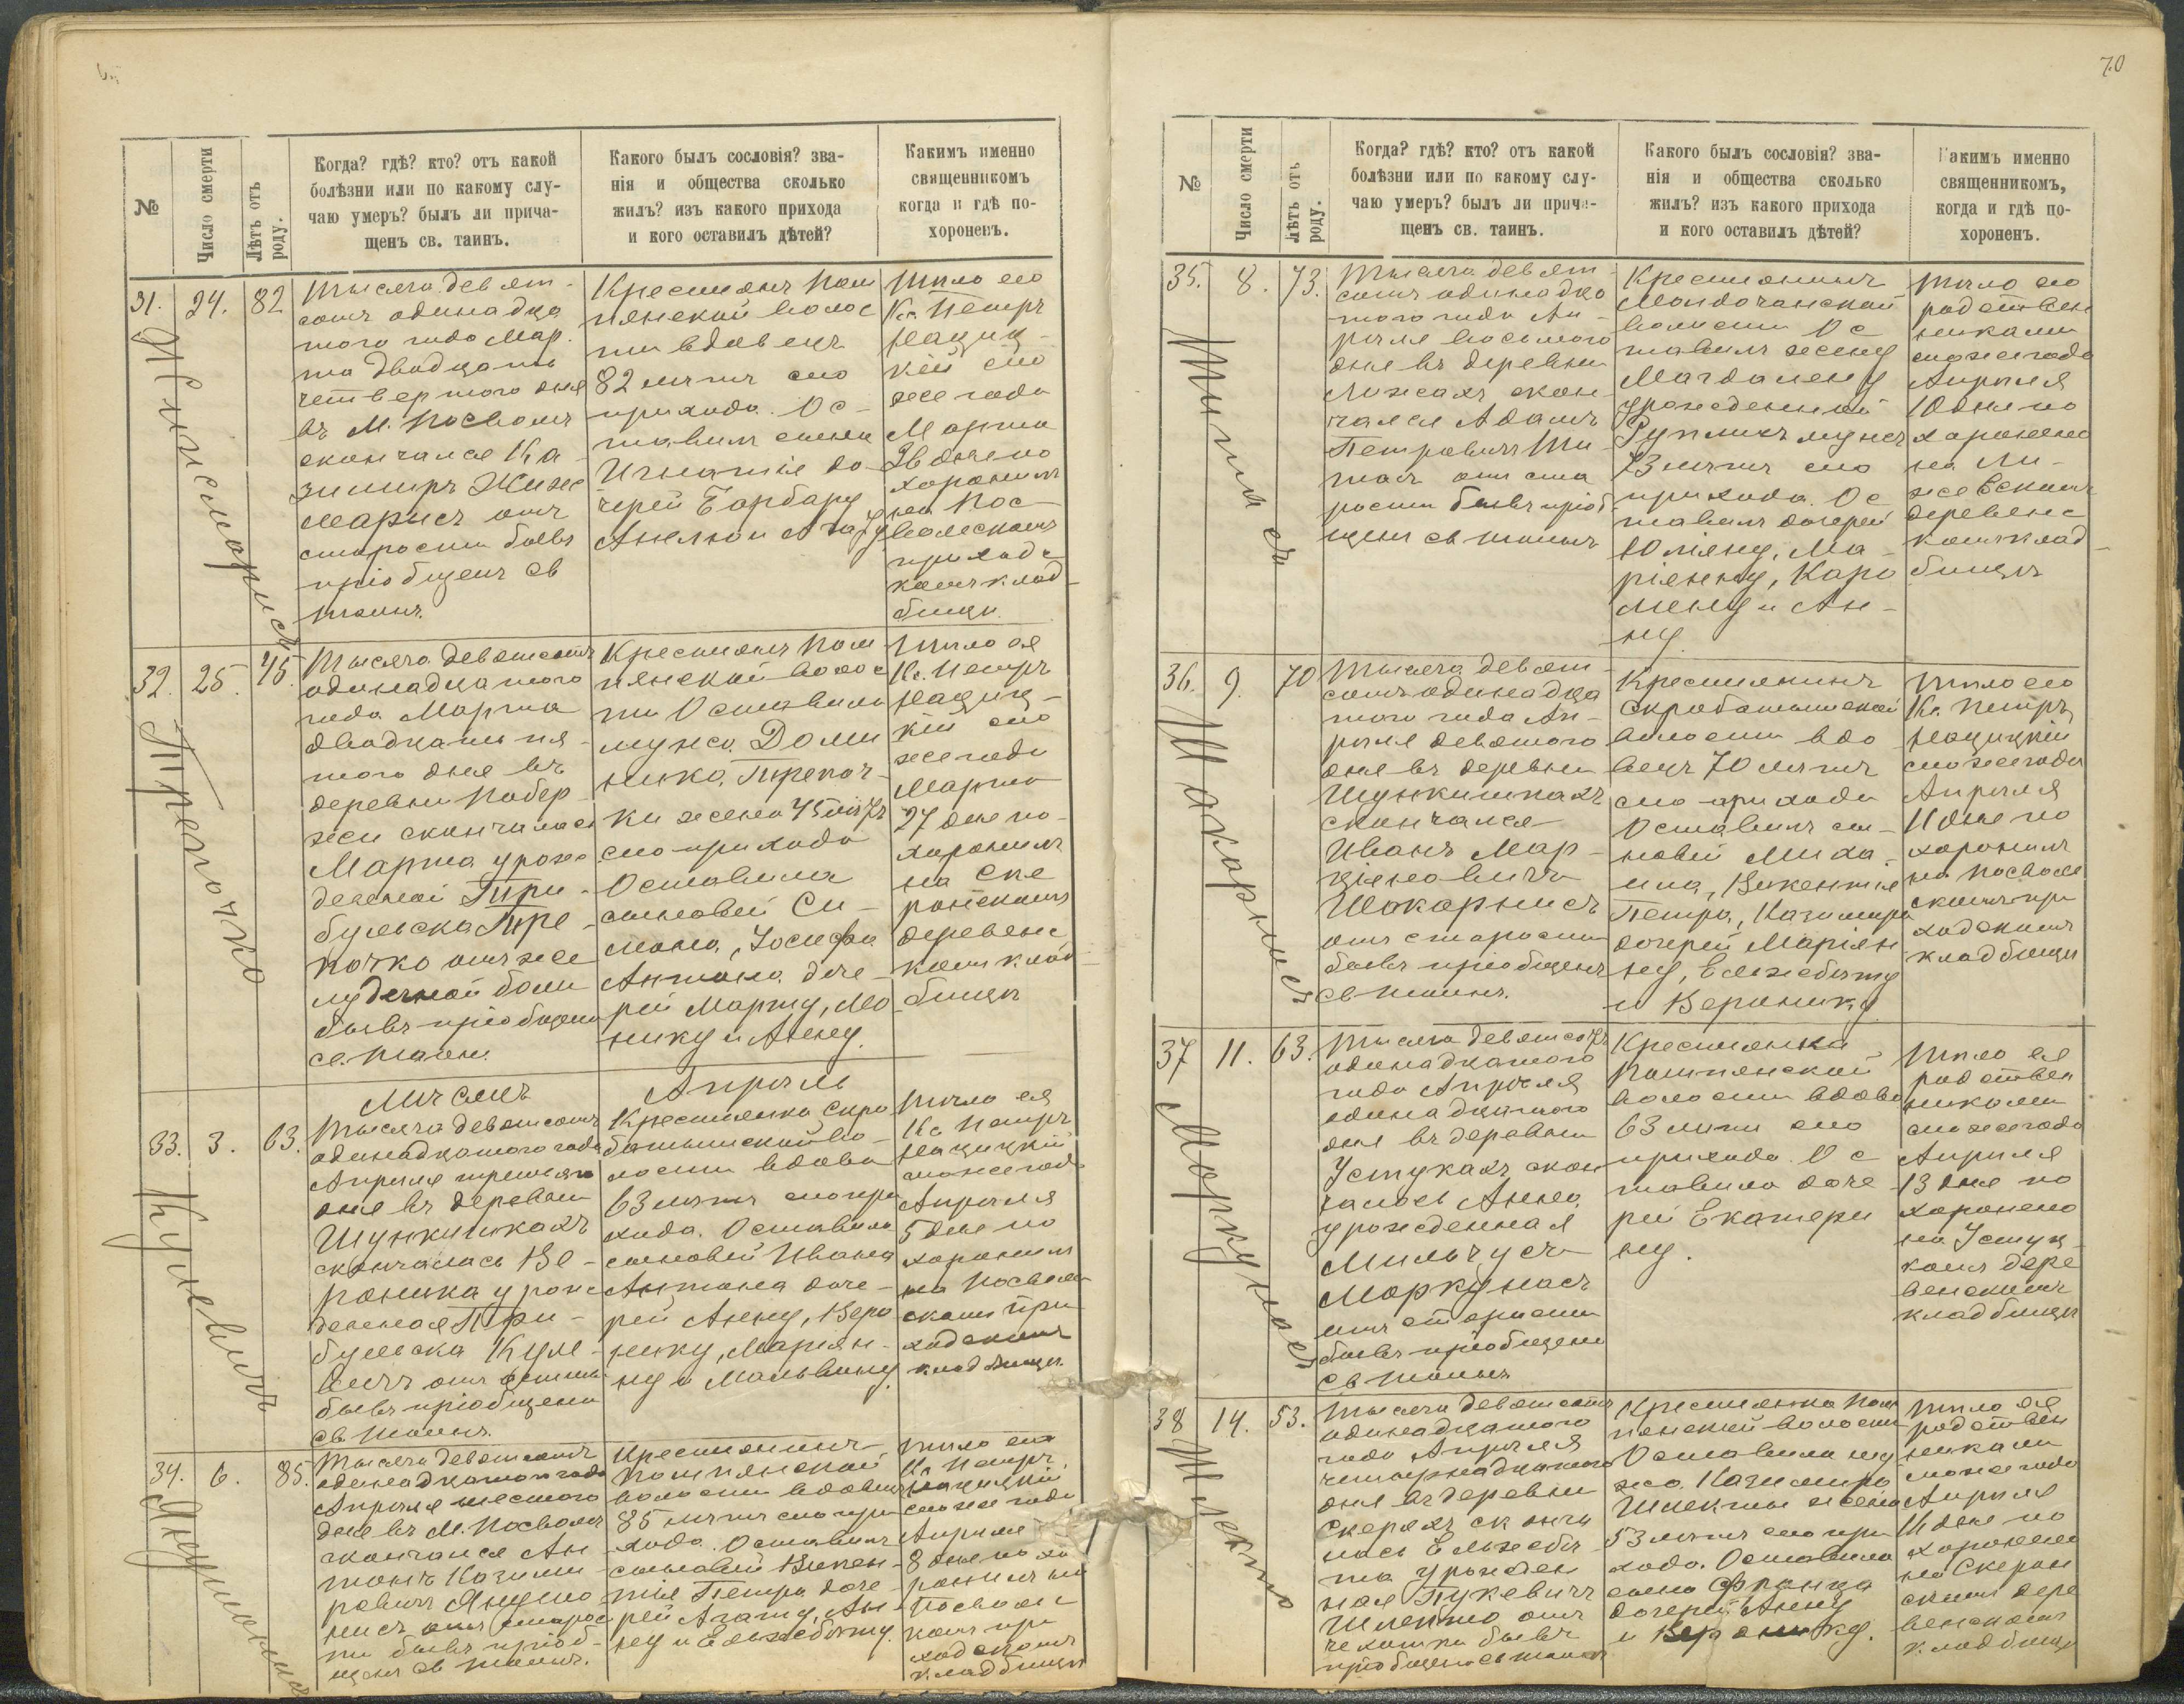 70
№
Число смерти
Лѣтъ отъ роду.
Когда? гдѣ? кто? отъ какой
болѣзни или по какому слу-
чаю умеръ? былъ ли прича-
щенъ св. таинъ.
Какого былъ сословія? зва-
нія и общества сколько
жилъ? изъ какого прихода
и кого оставилъ дѣтей?
Какимъ именно
священникомъ
когда и гдѣ по-
хороненъ.
31. 24. 82
Тысяча девят-
сотъ одинадца
того года Мар-
та двадцать
четвертого дня
въ М. Посволѣ
скончался Ка-
зимиръ
отъ
старости бывъ
пріобщенъ св
таинъ.
Крестьянъ Пом
пянской волос
ти вдовецъ
82 лѣтъ сего
прихода. Ос-
тавилъ сына
Игнатія до-
черей Барбару
Анелю и Агату
Тѣло его
Кс. Петръ
сего
же года
Марта
26 дня по
хоронилъ
на Пос-
вольскомъ
приходс
комъ клад-
бищи.
32. 25. 45.
Тысяча девятсотъ
одинадцатого
года Марта
двадцать пя-
того дня въ
деревни Побер
жеи скончалась
Марта урож
деной Гри-
бульска Тре-
почко отъ же
лудечной боли
бывъ пріобщена
св. таинъ.
Трепочко
Крестьянъ Пом
пянской волос
ти Оставила
мужа Доми
ника Трепоч-
ки жена 45 лѣтъ
сего прихода
Оставила
сыновей Си-
мона, Іосифа
Антона доче-
рей Марту, Мо
нику и Анну.
Тѣло ея
Кс. Петръ
сего
же года
Марта
27 дня по-
хоронилъ
на Ске
ронскомъ
деревенс
комъ клад-
бищи
Мѣсяцъ Апрѣль
33. 3. 63.
Тысяча девятсотъ
одинадцатого года
Апрѣля третьяго
дня въ деревни
Шункишкахъ
скончалась Ве-
роника урож
деная Гри-
бульска Куле-
вичъ отъ
бывъ пріобщена
св. таинъ.
Кулевичъ
Крестьянка Скро
ботышской во-
лости вдова
63 лѣтъ сего при
хода. Оставила
сыновей Ивана
Антона доче-
рей Анну, Веро
нику, Маріян-
ну и Мальвину.
Тѣло ея
Кс. Петръ
сего же года
Апрѣля
5 дня по
хоронилъ
на Посволь
скомъ при
ходскомъ
кладбищи.
34. 6. 85.
Тысяча девятсотъ
одинадцатого года
Апрѣля шестого
дня въ М. Посволѣ
скончался Ан
тонъ Казими
ровичъ
отъ старос
ти бывъ пріоб-
щенъ св таинъ.
Крестьянинъ
Помпянской
волости вдовецъ
85 лѣтъ сего при
хода. Оставилъ
сыновей Викен-
тія Петра доче-
рей Агату, Ан-
ну и Ельжебѣту.
Тѣло его
Кс. Петръ
сего же года
Апрѣля
8 дня по хо
ронилъ на
Посвольс
комъ при
ходскомъ
кладбищи
№
Число смерти
Лѣтъ отъ роду.
Когда? гдѣ? кто? отъ какой
болѣзни или по какому слу-
чаю умеръ? былъ ли прича-
щенъ св. таинъ.
Какого былъ сословія? зва-
нія и общества сколько
жилъ? изъ какого прихода
и кого оставилъ дѣтей?
Какимъ именно
священникомъ,
когда и гдѣ по-
хороненъ.
35. 8. 73.
Тысяча девят-
сотъ одинадца
того года Ап-
рѣля восьмого
дня въ деревни
скон-
чался Адамъ
Петровичъ Ти-
отъ ста
рости бывъ пріоб
щенъ св таинъ
Крестьянинъ
волости Ос
тавилъ жену
Магдалену
урожденной
мужъ
73 лѣтъ сего
прихода. Ос
тавилъ дочерей
Юліяну, Ма-
ріянну, Каро
лину и Ан-
ну.
Тѣло его
родствен
никами
сего же года
Апрѣля
10 дня по
хоронено
на
деревенс
комъ клад-
бищи
36. 9. 70
Тысяча девят-
сотъ одинадца
того года Ап-
рѣля девятого
дня въ деревни
Шункишкахъ
скончался
Иванъ Мар-
циновичъ
Шокарнисъ
отъ старости
бывъ пріобщенъ
св таинъ.
Шокарнисъ
Крестьянинъ
Скроботышской
волости вдо
вецъ 70 лѣтъ
сего прихода
Оставилъ сы-
новей Миха-
ила, Викентія
Петра, Казимира
дочерей Маріян
ну, Ельжебѣту
и Веронику
Тѣло его
Кс. Петръ
сего же года
Апрѣля
11 дня по
хоронилъ
на Посволь
скомъ при
ходскомъ
кладбищи
37 11. 63.
Тысяча девятсотъ
одинадцатого
года Апрѣля
одинадцатого
дня въ деревни
Устукахъ скон
чалась Анна
урожденная
Мильчусъ
Моркунасъ
отъ старости
бывъ пріобщена
св таинъ
Моркунасъ
Крестьянка
Помпянской
волости вдова
63 лѣтъ сего
прихода. Ос
тавила доче
рей Екатери
ну.
Тѣло ея
родствен
никами
сего же года
Апрѣля
13 дня по
хоронено
на Устук
комъ дере
венскимъ
кладбищи
38 14. 53.
Тысяча девятсотъ
одинадцатого
года Апрѣля
четырнадцатого
дня въ деревни
Скеряхъ сконча
лась Ельжебѣ
та урожден
ная Пукевичъ
Шлекто отъ
чехотки бывъ
пріобщена св таинъ
Шлекто
Крестьянка Пом
пянской волости
Оставила му
жа Казимира
Шлекты жена
53 лѣтъ сего при
хода. Оставила
сына Франца
дочерей Анну
и Веронику.
Тѣло ея
родствен
никами
сего же года
Апрѣля
16 дня по
хоронено
на Скерон
скимъ дере
венскомъ
кладбищи